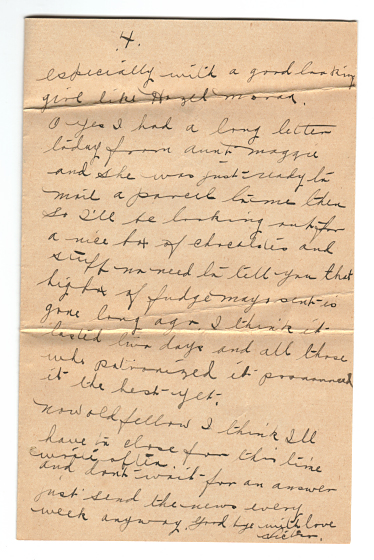 4.
especially with a good looking
girl like Hazel
O yes I had a long letter
today from aunt Maggie
and she was just ready to
mail a parcel to me then
So I'll be looking out for
a nice box of chocolates and
stuff no need to tell you that
big box of fudge mayo sent is
gone long ago, I think it
lasted two days and all those
who patronized it pronounced
it the best yet.
Now old fellow I think I'll
have to close for this time
write often
and don't wait for an answer
just send the news every
week anyway. Good bye with love